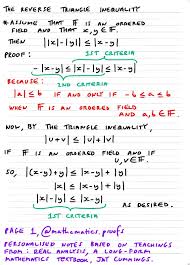 THE REVERSE TRIANGLE INEQUALITY
* ASSUME THAT 𝔽 IS AN ORDERED
FIELD AND THAT x, y ∈ 𝔽.
THEN ||x|-|y|| ≤ |x-y|
PROOF: 1ST CRITERIA
-|x-y| ≤ |x|-|y| ≤ |x-y|
BECAUSE: 2ND CRITERIA
|a| ≤ b IF AND ONLY IF -b ≤ a ≤ b
WHEN 𝔽 IS AN ORDERED FIELD
AND a, b ∈ 𝔽.
NOW, BY THE TRIANGLE INEQUALITY,
|u+v| ≤ |u|+|v|
IF 𝔽 IS AN ORDERED FIELD AND IF
u, v ∈ 𝔽.
SO, |(x-y)+y| ≤ |x-y|+|y|
|x| ≤ |x-y|+|y|
|x|-|y| ≤ |x-y| AS DESIRED.
1ST CRITERIA
PAGE 1, @mathematics.proofs
PERSONALISED NOTES BASED ON TEACHINGS
FROM: REAL ANALYSIS, A LONG-FORM
MATHEMATICS TEXTBOOK, JAY CUMMINGS.